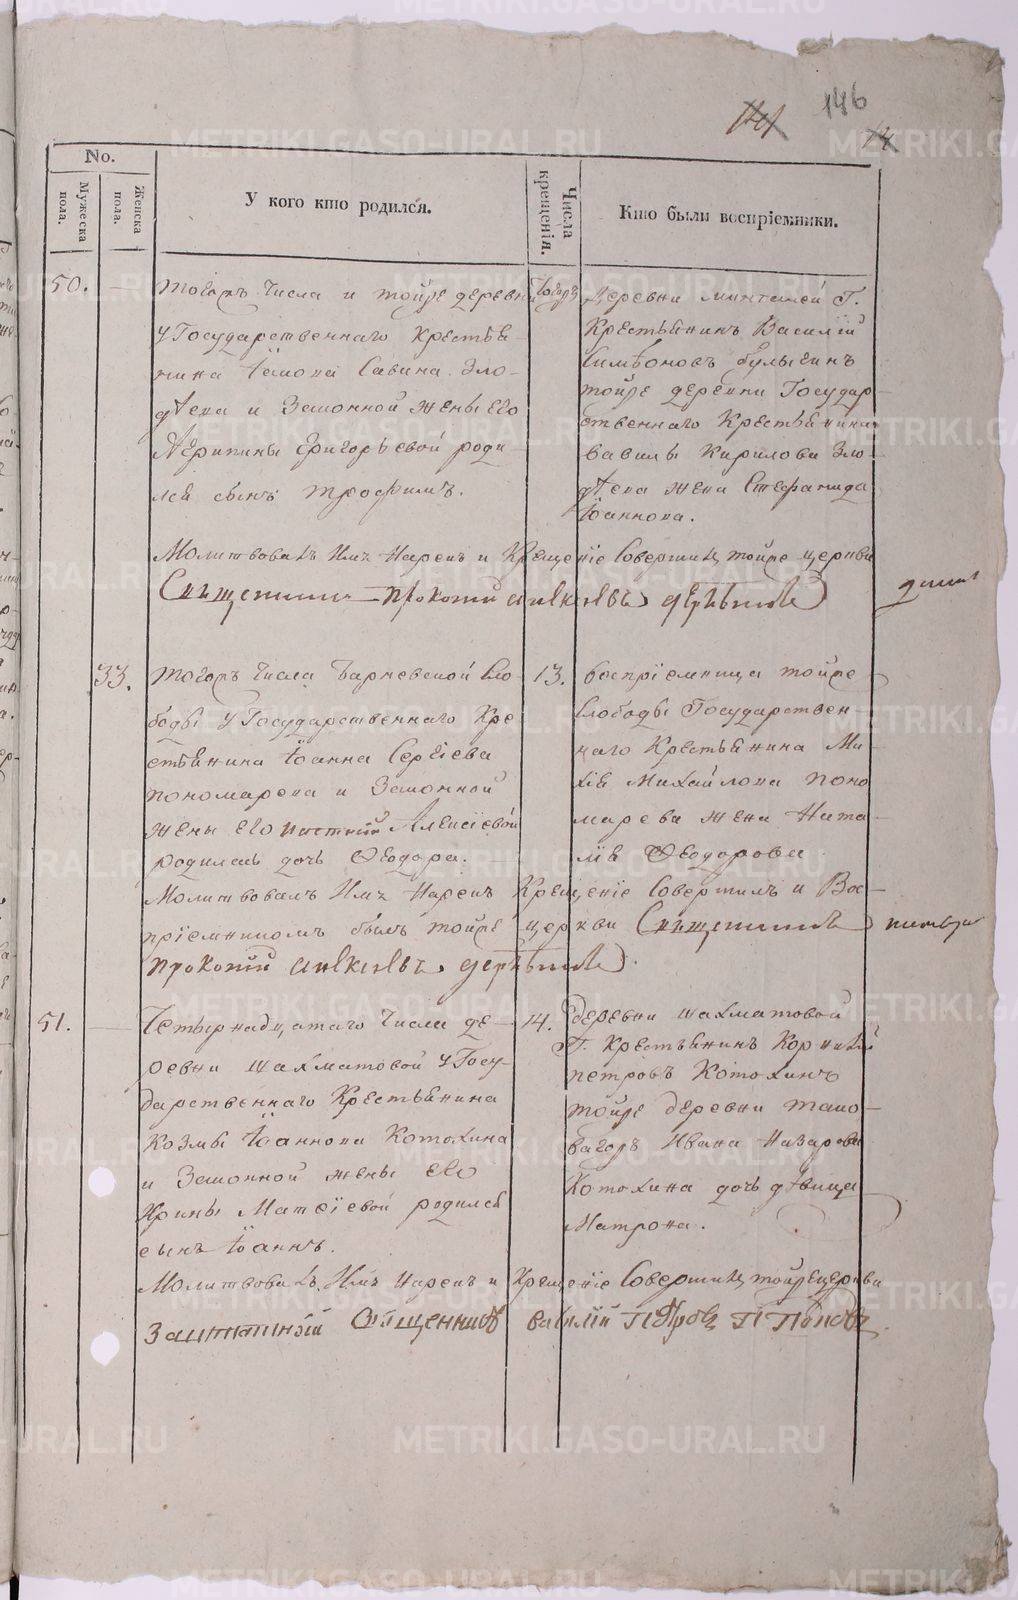 146
No.
Мужеска пола.
Женска пола.
У кого кто родился.
Числа крещенія.
Кто были воспріемники.
50.
тогожъ числа и тойже деревни
у Государственнаго Крестья-
нина Савина Зло-
дѣева и Законной жены его
Агрипины Григорьевой роди-
лся сынъ Трофимъ.
тогожъ
деревни Г.
Крестьянинъ Василій
тойже деревни Государ-
ственнаго Крестьянина
Вавилы Кирилова Зло-
дѣева жена Стефанида
Іоаннова.
Молитвовалъ Имя Нарекъ и Крещеніе Совершилъ тойже церкви
Священникъ Прокопій
33.
тогожъ числа Барневской Сло-
боды у Государственнаго Кре-
стьянина Іоанна Сергіева
Пономарева и Законной
жены его Алексіевой
родилась дочь Ѳеодора.
13.
воспріемница тойже
Слободы Государствен-
наго Крестьянина Ми-
Михайлова Поно
марева жена Ната-
лія Ѳеодорова
Молитвовалъ Имя Нарекъ Крещеніе Совершилъ и Вос-
пріемникомъ былъ тойже церкви Священникъ
Прокопій
51.
Четырнадцатаго числа де-
ревни Шахматовой у Госу-
дарственнаго Крестьянина
Козмы Іоаннова Котохина
и Законной жены его
Ирины Матѳіевой родился
сынъ Іоаннъ.
14.
деревни Шахматовой
Г. Крестьянинъ Корнилій
Петровъ Котохинъ
тойже деревни тако-
вагожъ Ивана Назарова
Котохина дочь дѣвица
Матрона.
Молитвовалъ Имя Нарекъ и Крещеніе Совершилъ тойже церкви
Заштатный Священникъ Василій Петровъ Поповъ.
METRIKI.GASO-URAL.RU